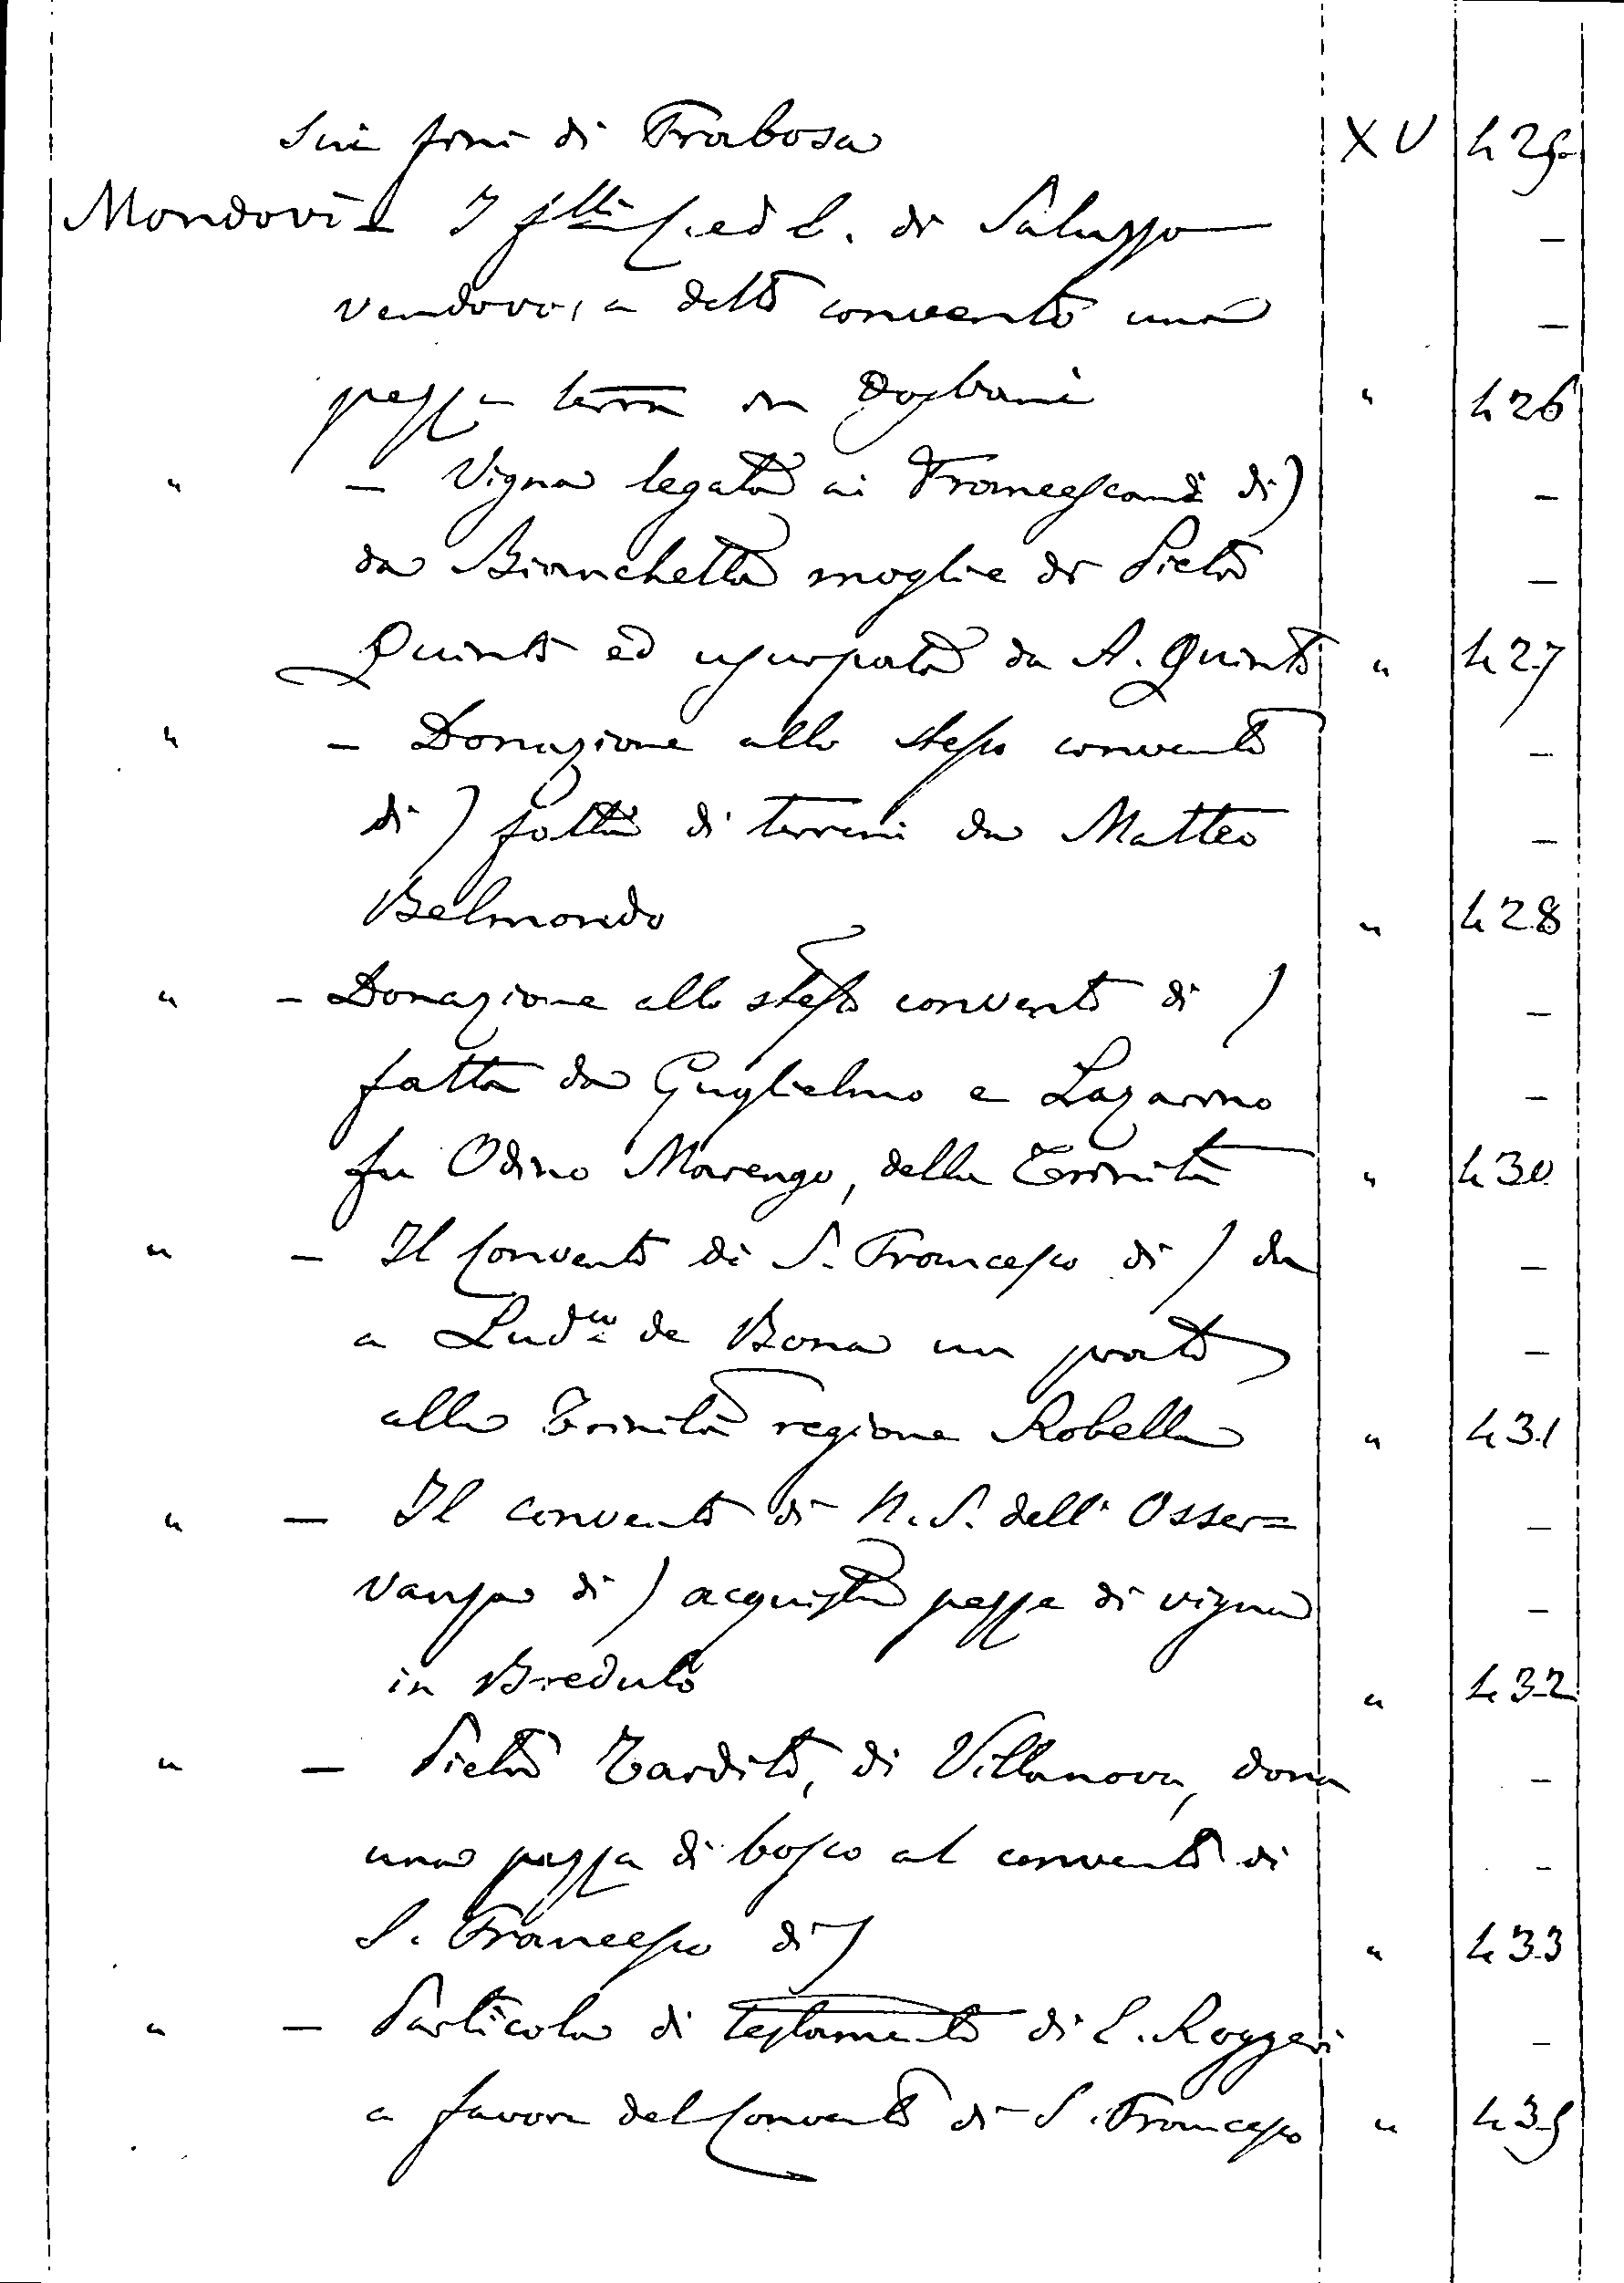 sui fini di Frabosa XV 425
Mondovì - I f.lli C. ed L. di Saluzzo —
vendono, a detto convento una —
pezza terra in Dogliani " 426
" - Vigna legata ai Francescani di ) —
da Bianchetta moglie di Pietro —
Quinto ed usurpata da A. Quinto " 427
" - Donazione allo stesso convento —
di ) fatta di terreni da Matteo —
Belmondo " 428
" - Donazione allo stesso convento di ) —
fatta da Guglielmo e Lazarino —
fu Odino Marengo, della Trinità " 430
" - Il Convento di S. Francesco di ) da —
a Lud.co de Bona un prato —
alla Trinità regione Robella " 431
" - Il convento di N. S. dell' Osser= —
vanza di ) acquista pezze di vigna —
in Bredulo " 432
" - Pietro Tardito, di Villanova, dona —
una pezza di bosco al convento di —
S. Francesco di ) " 433
" - Particola di testamento di L. Roggeri —
a favore del Convento di S. Francesco " 435